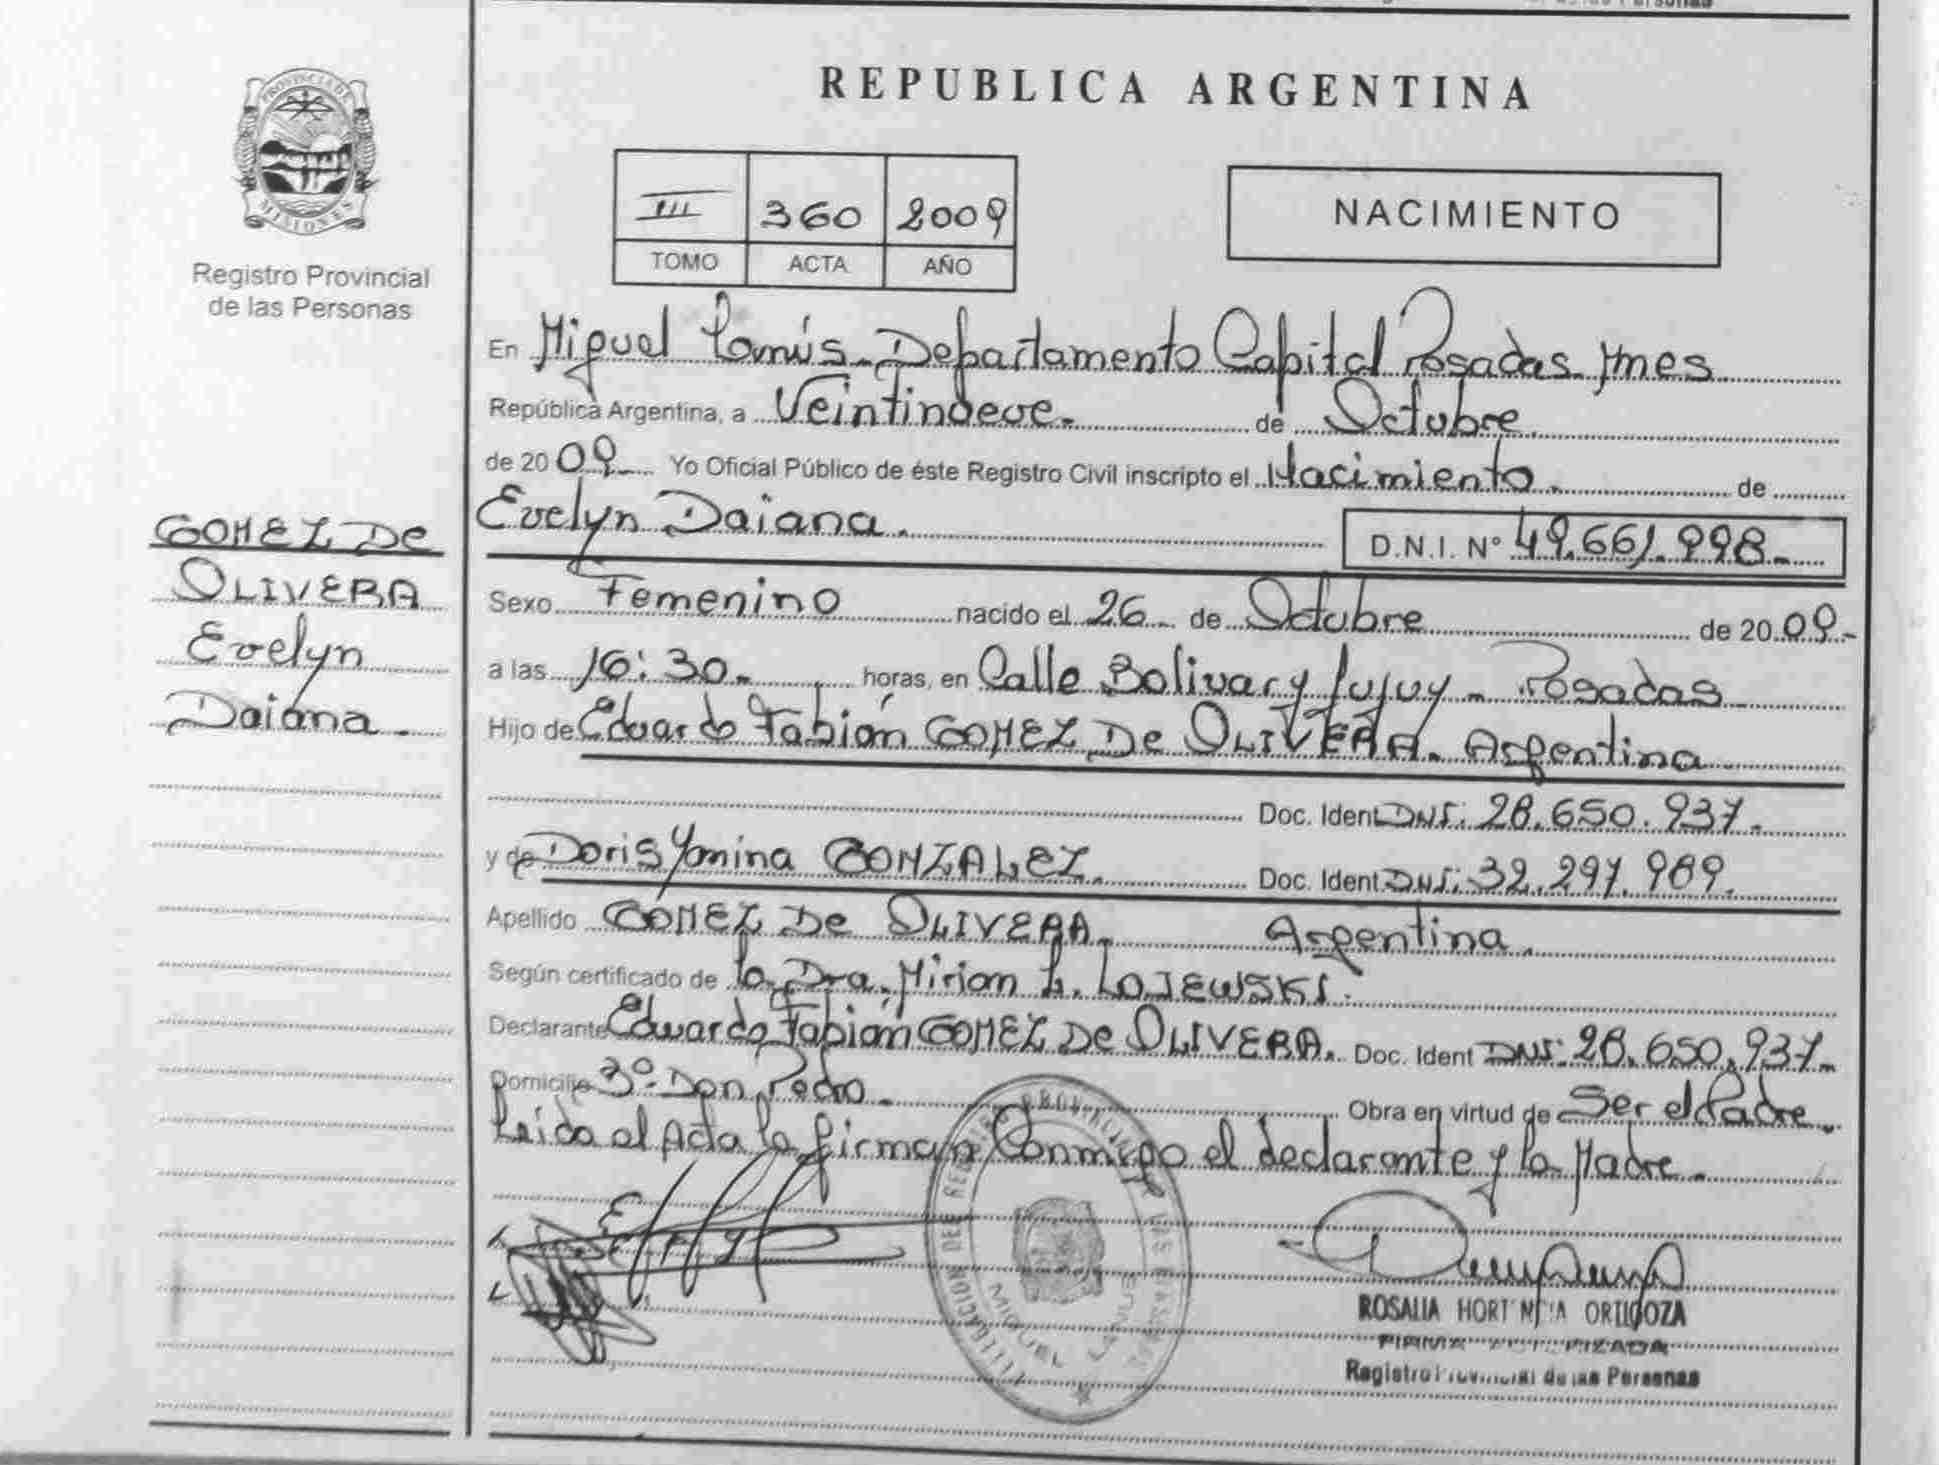 PROVINCIA DE
MISIONES
Registro Provincial
de las Personas
GOMEZ De
OLIVERA
Evelyn
Daiana.
REPUBLICA ARGENTINA
III 360 2009
TOMO ACTA AÑO
NACIMIENTO
En Miguel Lanús - Departamento Capital Posadas Mnes
República Argentina, a Veintinueve - de Octubre
de 2009 Yo Oficial Público de éste Registro Civil inscripto el Nacimiento - de
Evelyn Daiana. D.N.I. N° 49.661.998-
Sexo Femenino nacido el 26 - de Octubre de 2009-
a las 16:30- horas, en Calle Bolivar y Jujuy - Posadas
Hijo de Eduardo Fabián GOMEZ De OLIVERA. Argentina
Doc. Ident DNI: 28.650.937-
y de Doris Yanina GONZALEZ. Doc. Ident DNI: 32.297.989.
Apellido GOMEZ De OLIVERA. Argentina.
Según certificado de la Dra. Mirian L. LOJEWSKI.
Declarante Eduardo Fabián GOMEZ De OLIVERA. Doc. Ident DNI: 28.650.937-
Domicilio 3° Don Pedro - Obra en virtud de Ser el Padre.
Leída el Acta la firman Conmigo el declarante y la Madre.
DELEGACION DEL REGISTRO PROVINCIAL DE LAS PERSONAS
MIGUEL LANUS
ROSALIA HORTENCIA ORTIGOZA
FIRMA AUTORIZADA
Registro Provincial de las Personas